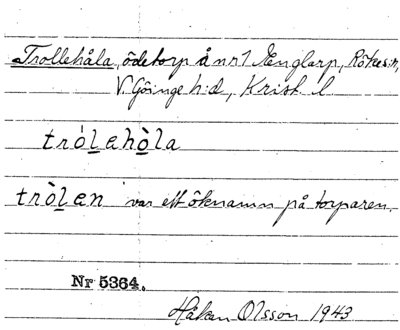 Trollehåla, ödetorp å nr 1 Englarp, Röke s:n,
V. Göinge h:d, Krist. l
tròlehòla
tròlen var ett öknamn på torparen.
Nr 5364.
Håkan Olsson 1943